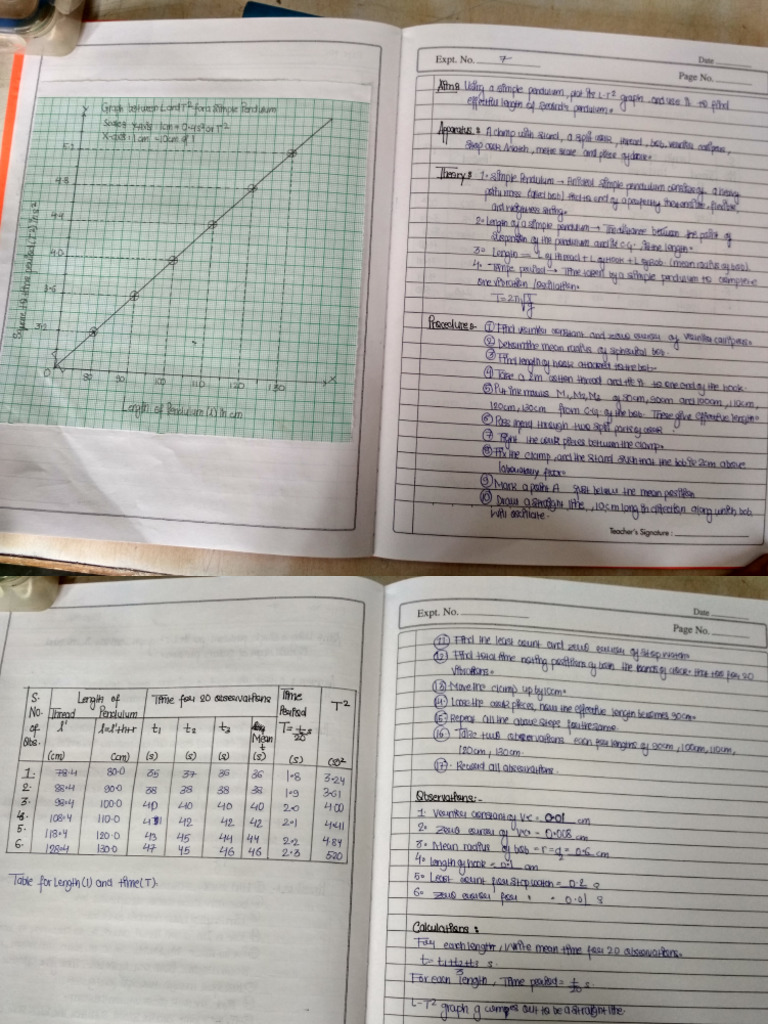 Graph between L and T² for a Simple Pendulum
Scales Y-axis - 1cm = 0.4 s² of T²
X-axis : 1cm = 10cm of l
Y
5.2
4.8
4.4
4.0
3.6
3.2
O
80
90
100
110
120
130
X
Square of time period (T²) in s²
Length of Pendulum (l) in cm
Expt. No. 7
Date
Page No.
Aim: Using a simple pendulum, plot its L-T² graph and use it to find
effective length of second's pendulum.
Apparatus: A clamp with stand, a split cork, thread, bob, vernier callipers,
stop clock/watch, metre scale and piece of chalk.
Theory: 1. Simple Pendulum → simple pendulum consists of a heavy
point mass
2. Length of a simple pendulum → The distance between the point of
suspension of the pendulum and its C.G. is the length.
3. Length = L of thread + L of hook + L of Bob (mean radius of bob).
4. Time period → Time taken by a simple pendulum to complete
one vibration/oscillation.
T=2π√l/g
Procedure: ① Find vernier constant and zero error of vernier callipers.
② Determine mean radius of spherical bob.
③ Find length of hook attached to the bob.
④ Take a 2m cotton thread and tie it to one end of the hook.
⑤ Put ink marks M₁, M₂, M₃ of 80cm, 90cm and 100cm, 110cm,
120cm, 130cm from C.G. of the bob. These give effective length.
⑥ Pass thread through two split parts of cork.
⑦ Tight the cork pieces between the clamp.
⑧ Fix the clamp, and the stand such that the bob is 2cm above
laboratory floor.
⑨ Mark a point A just below the mean position
⑩ Draw a straight line, 10cm long in direction along which bob
will oscillate.
Teacher's Signature :
S. No. of Obs.
Length of
Thread l' (cm)
Pendulum l=l'+h+r (cm)
Time for 20 observations
t₁ (s) t₂ (s) t₃ (s) Mean t (s)
Time Period T = t/20 s (s)
T²
1. 78.4 80.0 35 37 36 36 1.8 3.24
2. 88.4 90.0 38 38 38 38 1.9 3.61
3. 98.4 100.0 40 40 40 40 2.0 4.00
4. 108.4 110.0 42 42 42 2.1 4.41
5. 118.4 120.0 43 45 44 44 2.2 4.84
6. 128.4 130.0 47 45 46 46 2.3
Table for Length (l) and time (T).
Expt. No.
Date
Page No.
⑪ Find the least count and zero error of stop watch.
⑫ Find total time noting positions of both the hands of clock. that too for 20
vibrations.
⑬ Move the clamp up by 10cm.
⑭ Lose the cork pieces, now the effective length becomes 90cm.
⑮ Repeat all the above steps for the same.
⑯ Take two observations each for lengths of 90cm, 100cm, 110cm,
120cm, 130cm.
⑰. Record all observations.
Observations:-
1. Vernier constant of VC = 0.01 cm
2. Zero error of VC = 0.008 cm
3. Mean radius of bob = r = = 0.6 cm
4. length of hook = 0.1 cm
5. Least count for stop watch = 0.2 s
6. Zero error for " = 0.01 s
Calculations :
For each length, write mean time for 20 observations.
t = t₁+t₂+t₃ s.
3
For each length, Time period = t/20 s
L-T² graph g comes out to be a straight line.